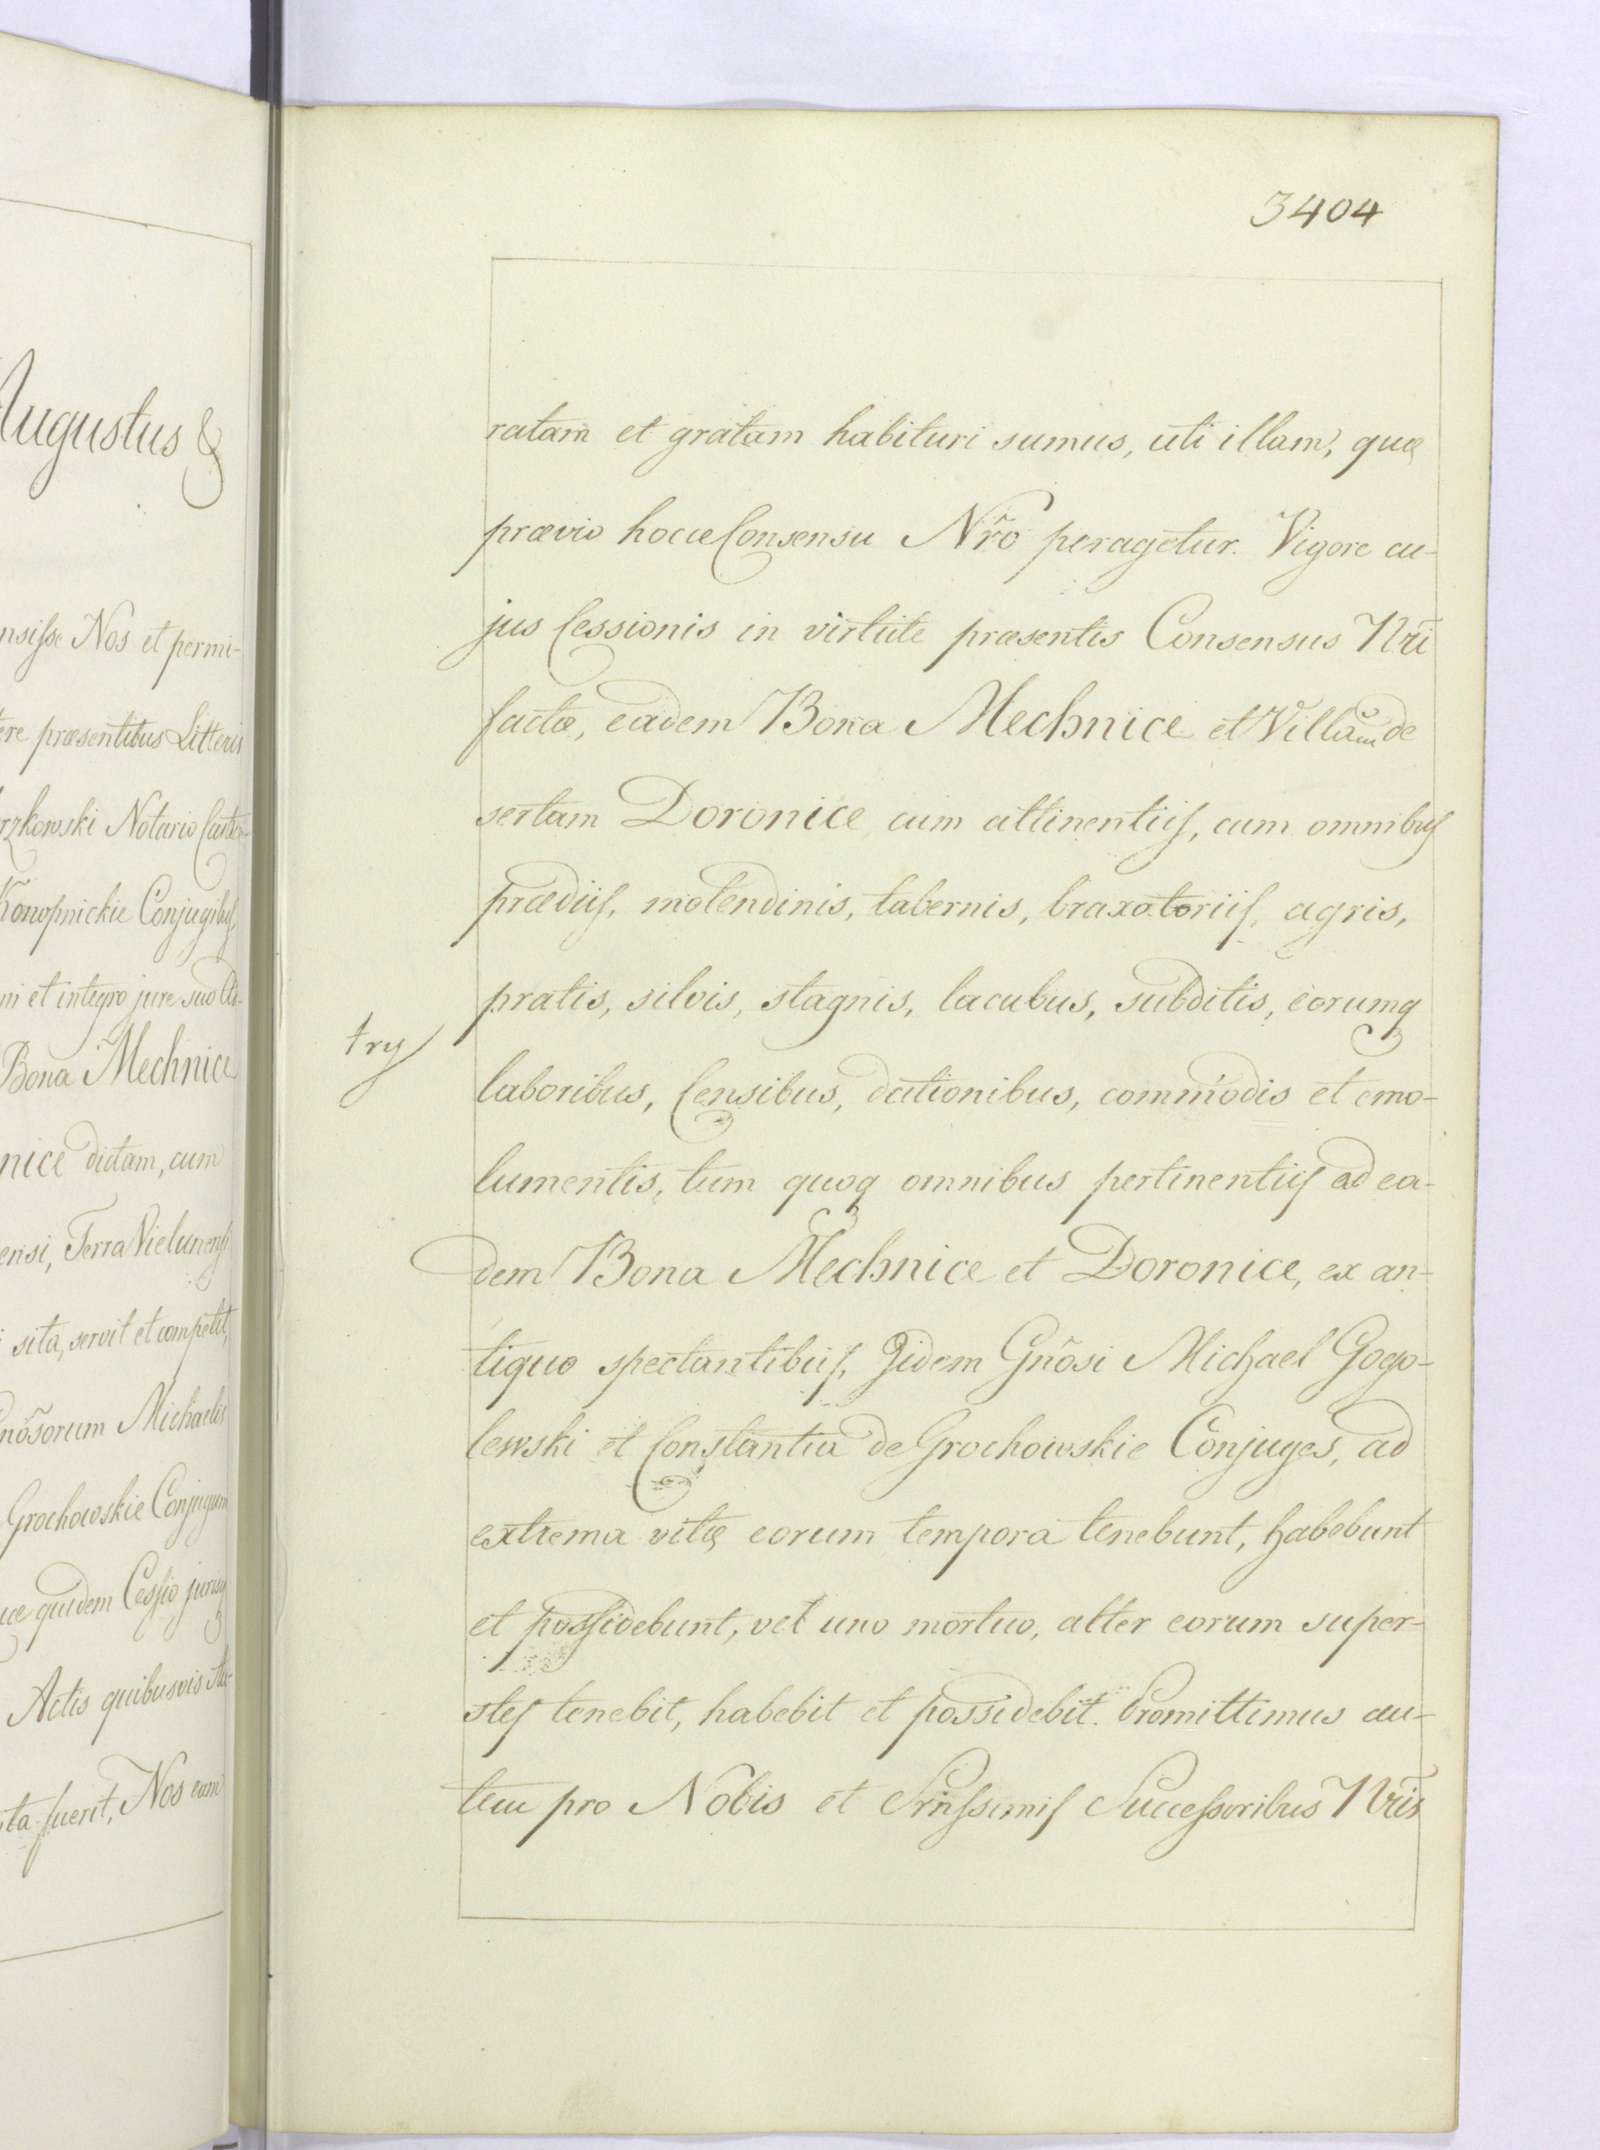 Augustus &
nsisse Nos et permi-
ere præsentibus Litteris
rzkowski Notario Castr-
Konopnickie Conjugibus,
ni et integro jure suo
Bona Mechnice
nice dictam, cum
ensi, Terra Vielunensi
sita, servit et competit,
nõsorum Michaelis
Grochowskie Conjugum
uæ quidem Cessio jurisq
Actis quibusvis
ta fuerit, Nos eam
3404
ratam et gratam habituri sumus, uti illam, quæ
prævio hocce Consensu Nr̃o peragetur. Vigore cu-
jus Cessionis in virtute præsentis Consensus Nr̃i
factæ, eadem Bona Mechnice et Villam de
sertam Doronice cum attinentiis, cum omnibus
prædiis, molendinis, tabernis, braxatoriis, agris,
pratis, silvis, stagnis, lacubus, subditis, eorumq
try
laboribus, Censibus, dationibus, commodis et emo-
lumentis, tum quoq omnibus pertinentiis ad ea-
dem Bona Mechnice et Doronice, ex an-
tiquo spectantibus, Iidem Gñosi Michael Gogo-
lewski et Constantia de Grochowskie Conjuges, ad
extrema vitæ eorum tempora tenebunt, habebunt
et possidebunt, vel uno mortuo, alter eorum super-
stes tenebit, habebit et possidebit. Promittimus au-
tem pro Nobis et Srñssimis Successoribus Nr̃is